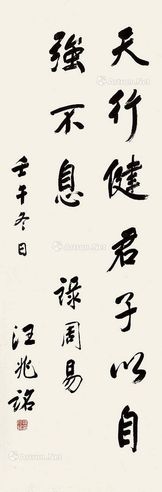 天行健君子以自
強不息 錄周易
壬午冬日
汪兆銘